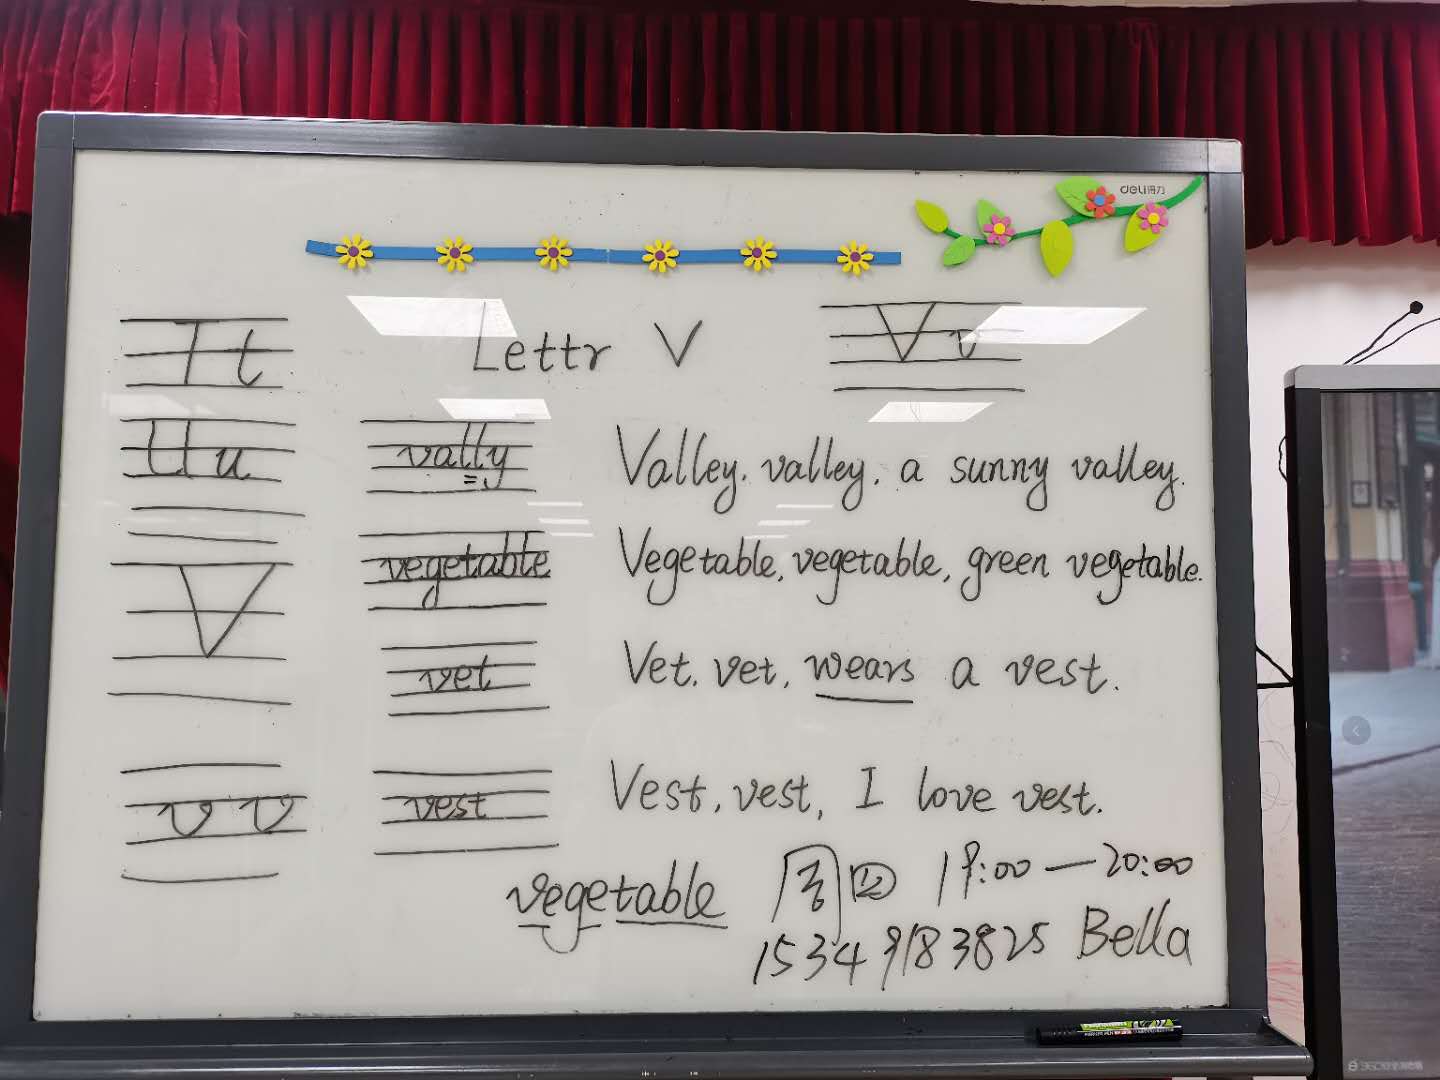 deli得力
Tt Lettr V Vv
Uu vally Valley, valley, a sunny valley.
V vegetable Vegetable, vegetable, green vegetable.
vet Vet, vet, wears a vest.
v v vest Vest, vest, I love vest.
vegetable 周四 19:00—20:00
15349183825 Bella